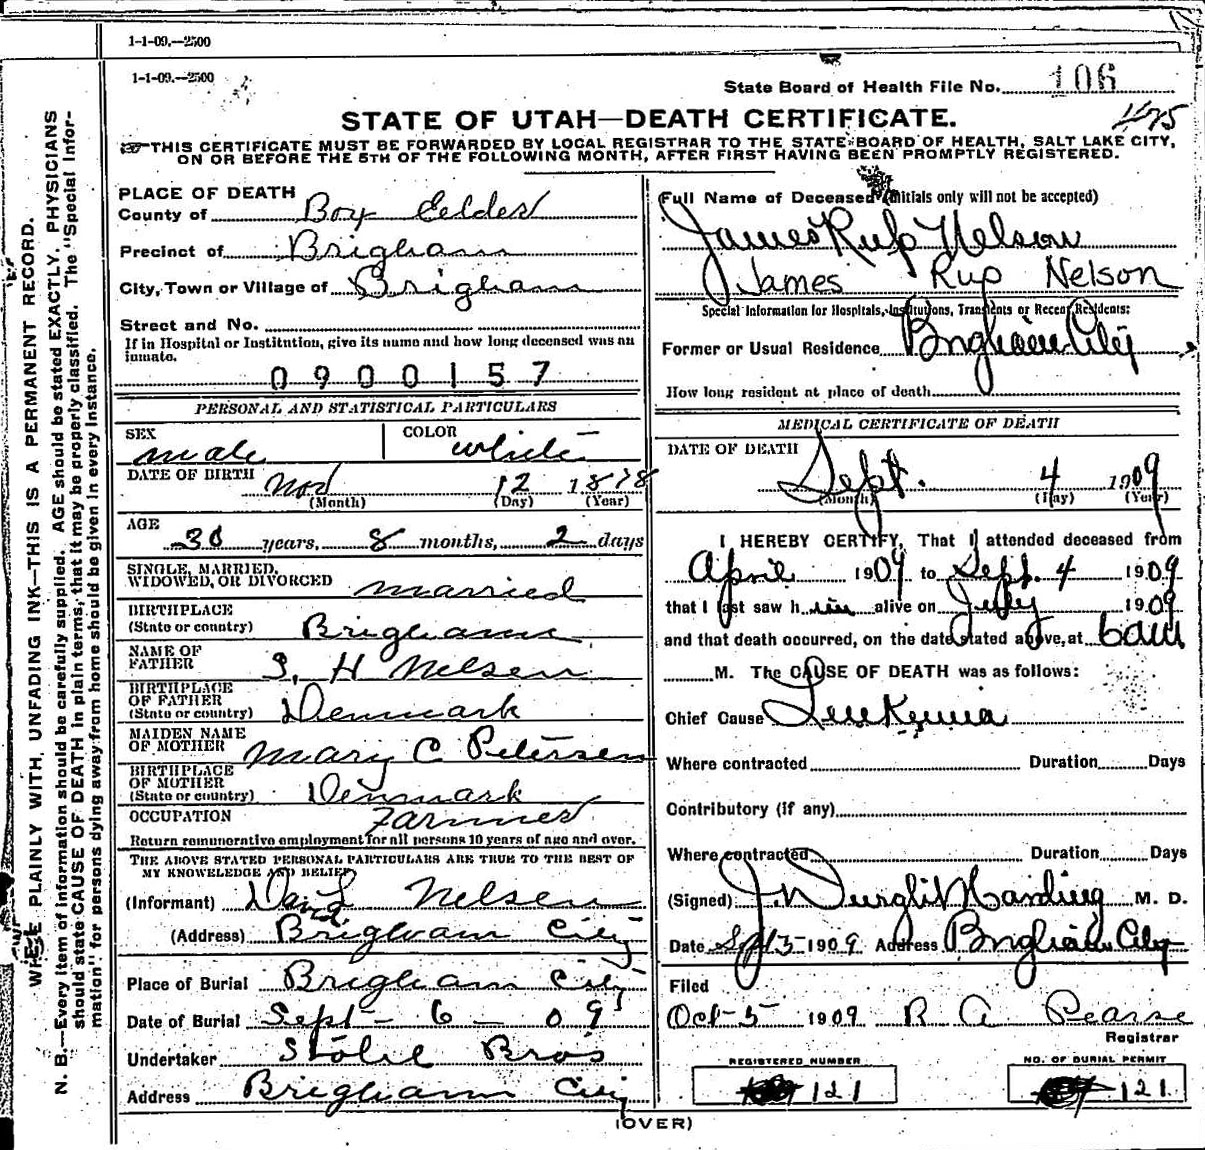 1-1-09.—2500
1-1-09.—2500
State Board of Health File No. 106
475
STATE OF UTAH—DEATH CERTIFICATE.
THIS CERTIFICATE MUST BE FORWARDED BY LOCAL REGISTRAR TO THE STATE BOARD OF HEALTH, SALT LAKE CITY,
ON OR BEFORE THE 5TH OF THE FOLLOWING MONTH, AFTER FIRST HAVING BEEN PROMPTLY REGISTERED.
WRITE PLAINLY WITH, UNFADING INK—THIS IS A PERMANENT RECORD.
N. B.—Every item of information should be carefully supplied. AGE should be stated EXACTLY. PHYSICIANS
should state CAUSE OF DEATH in plain terms, that it may be properly classified. The "Special Infor-
mation" for persons dying away from home should be given in every instance.
PLACE OF DEATH
County of Box Elder
Precinct of Brigham
City, Town or Village of Brigham
Street and No.
If in Hospital or Institution, give its name and how long deceased was an
inmate.
0900157
PERSONAL AND STATISTICAL PARTICULARS
SEX male COLOR white
DATE OF BIRTH Nov 12 1878
(Month) (Day) (Year)
AGE
30 years, 8 months, 2 days
SINGLE, MARRIED,
WIDOWED, OR DIVORCED married
BIRTHPLACE
(State or country) Brigham
NAME OF
FATHER S. H Nelsen
BIRTHPLACE
OF FATHER
(State or country) Denmark
MAIDEN NAME
OF MOTHER Mary C Petersen
BIRTHPLACE
OF MOTHER
(State or country) Denmark
OCCUPATION Farmer
Return remunerative employment for all persons 10 years of age and over.
THE ABOVE STATED PERSONAL PARTICULARS ARE TRUE TO THE BEST OF
MY KNOWELEDGE AND BELIEF
(Informant) Nelsen
(Address) Brigham City
Place of Burial Brigham City
Date of Burial Sept - 6 - 09
Undertaker Bros
Address Brigham City
Full Name of Deceased (Initials only will not be accepted)
James Rup Nelson
James Rup Nelson
Special Information for Hospitals, Institutions, Transients or Recent Residents:
Former or Usual Residence Brigham City
How long resident at place of death
MEDICAL CERTIFICATE OF DEATH
DATE OF DEATH
Sept. 4 1909
(Month) (Day) (Year)
I HEREBY CERTIFY, That I attended deceased from
April 1909 to Sept. 4 1909
that I last saw him alive on July 1909
and that death occurred, on the date stated above, at 6am
M. The CAUSE OF DEATH was as follows:
Chief Cause Leukemia
Where contracted Duration Days
Contributory (if any)
Where contracted Duration Days
(Signed) Harding M. D.
Date Sept 5 1909 Address Brigham City
Filed
Oct-5 1909 R A Pearse
Registrar
REGISTERED NUMBER
121
NO. OF BURIAL PERMIT
121
(OVER)